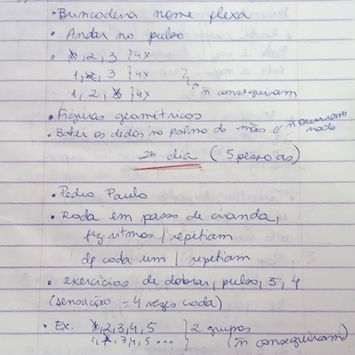 • Brincadeira nome flexa
• Andar no pulso
• 1, 2, 3 } 4x
1, 2, 3 } 4x
1, 2, 3 } 4x } ñ conseguiram
• Figuras geométricas
• Bater os dedos na palma da mão
2º dia (5 pessoas)
• Pedro Paulo
• Roda em passo de ciranda,
fiz ritmos / repetiam
dp cada um / repetiam
• exercícios de dobrar, pulso, 5, 4
(sensação - 4 vezes cada)
• Ex. 1, 2, 3, 4, 5 } 2 grupos
1, 2, 3, 4, 5 ... } (ñ conseguiram)